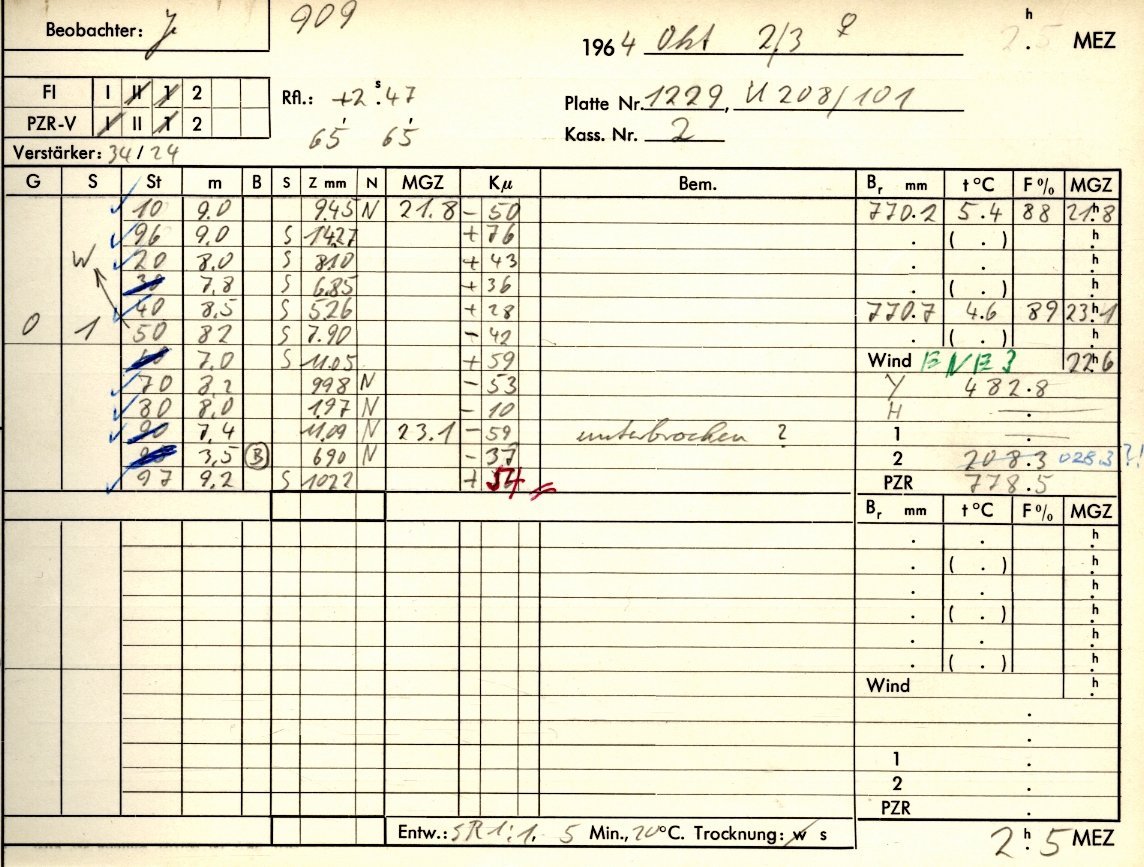 Beobachter:
909
1964 Okt 2/3 ♀
h 2.5 MEZ
FI I II 1 2
PZR-V I II 1 2
Verstärker: 34/24
Rfl.: +2s.47
65 65
Platte Nr. 1229, U 208/101
Kass. Nr. 2
G S St m B S Z mm N MGZ Kμ Bem.
10 9.0 9.45 N 21.8 - 50
96 9.0 S 14.27 + 76
W 20 8.0 S 8.10 + 43
30 7.8 S 6.85 + 36
40 8.5 S 5.26 + 28
0 1 50 8.2 S 7.90 - 42
60 7.0 S 11.05 + 59
70 8.2 9.98 N - 53
80 8.0 1.97 N - 10
90 7.4 11.09 N 23.1 - 59 unterbrochen ?
3.5 B 6.90 N - 37
97 9.2 S 10.22 + 54
Br mm t °C F % MGZ
770.2 5.4 88 21h.8
. ( . ) h
. . h
. ( . ) h
770.7 4.6 89 23h.1
. ( . ) h
Wind ENE 3 22h.6
Y 482.8
H .
1 .
2 208.3 028.3 ?!
PZR 778.5
Br mm t °C F % MGZ
. . h
. ( . ) h
. . h
. ( . ) h
. . h
. ( . ) h
Wind h
.
.
1 .
2 .
PZR .
Entw.: SR 1:1. 5 Min., 20°C. Trocknung: w s
2h.5 MEZ